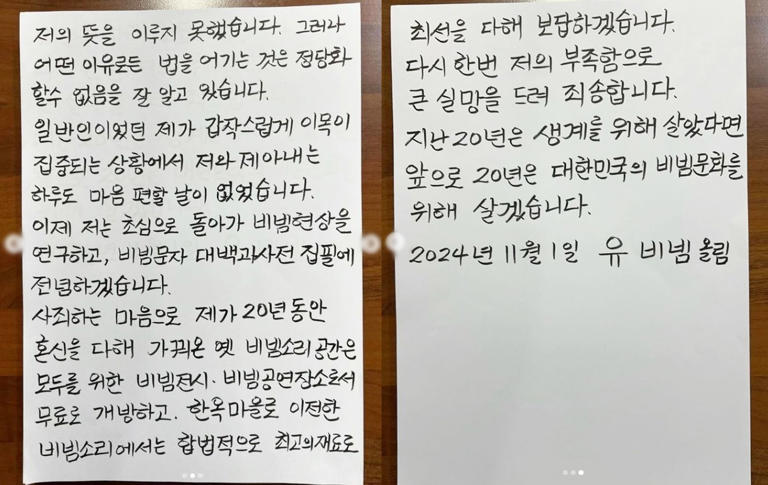 저의 뜻을 이루지 못했습니다. 그러나
어떤 이유로든 법을 어기는 것은 정당화
할수 없음을 잘 알고 있습니다.
일반인이었던 제가 갑작스럽게 이목이
집중되는 상황에서 저와 제아내는
하루도 마음 편할 날이 없었습니다.
이제 저는 초심으로 돌아가 비빔현상을
연구하고, 비빔문자 대백과사전 집필에
전념하겠습니다.
사죄하는 마음으로 제가 20년동안
혼신을 다해 가꿔온 옛 비빔소리공간은
모두를 위한 비빔전시·비빔공연장소로서
무료로 개방하고. 한옥마을로 이전한
비빔소리에서는 합법적으로 최고의재료로
최선을 다해 보답하겠습니다.
다시한번 저의 부족함으로
큰 실망을 드려 죄송합니다.
지난20년은 생계를 위해 살았다면
앞으로 20년은 대한민국의 비빔문화를
위해 살겠습니다.
2024년 11월 1일 유 비빔 올림